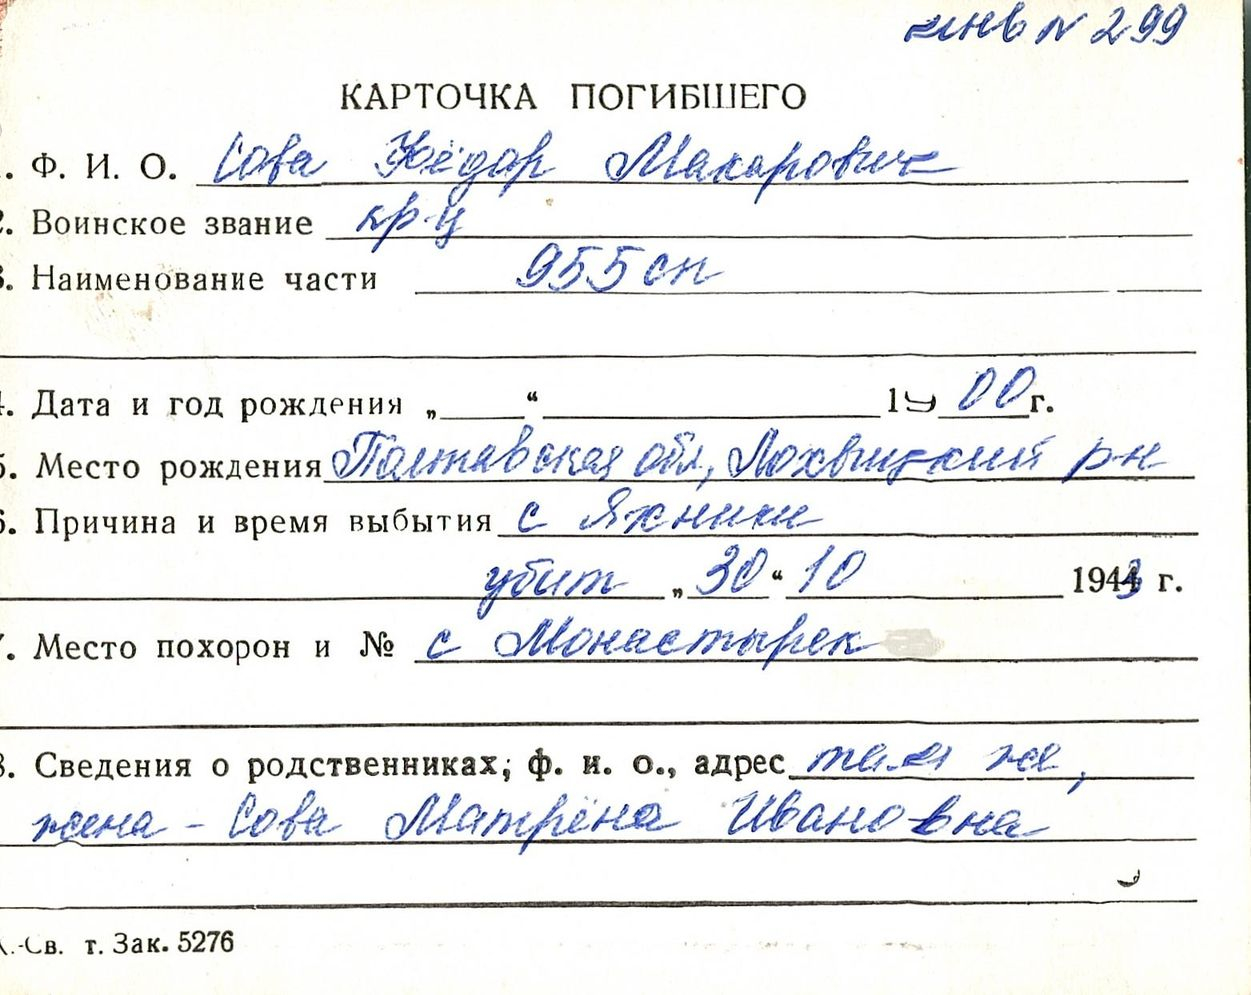 инв N 299
КАРТОЧКА ПОГИБШЕГО
. Ф. И. О. Сова Фёдор Макарович
2. Воинское звание кр-ц
3. Наименование части 955 сп
4. Дата и год рождения „ “ 1900 г.
5. Место рождения Полтавская обл, Лохвицкий р-н
6. Причина и время выбытия с Яхники
убит „30“ 10 1943 г.
7. Место похорон и № с Монастырек
8. Сведения о родственниках; ф. и. о., адрес там же,
жена - Сова Матрёна Ивановна
.-Св. т. Зак. 5276